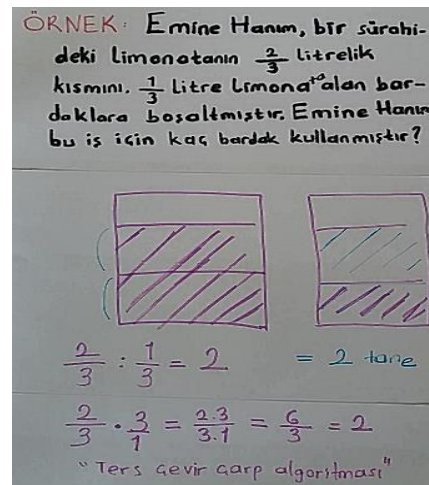 ÖRNEK: Emine Hanım, bir sürahi-
deki limonatanın 2/3 litrelik
kısmını, 1/3 litre limonata alan bar-
daklara boşaltmıştır. Emine Hanım
bu iş için kaç bardak kullanmıştır?
2/3 : 1/3 = 2 = 2 tane
2/3 . 3/1 = 2.3/3.1 = 6/3 = 2
"Ters çevir çarp algoritması"